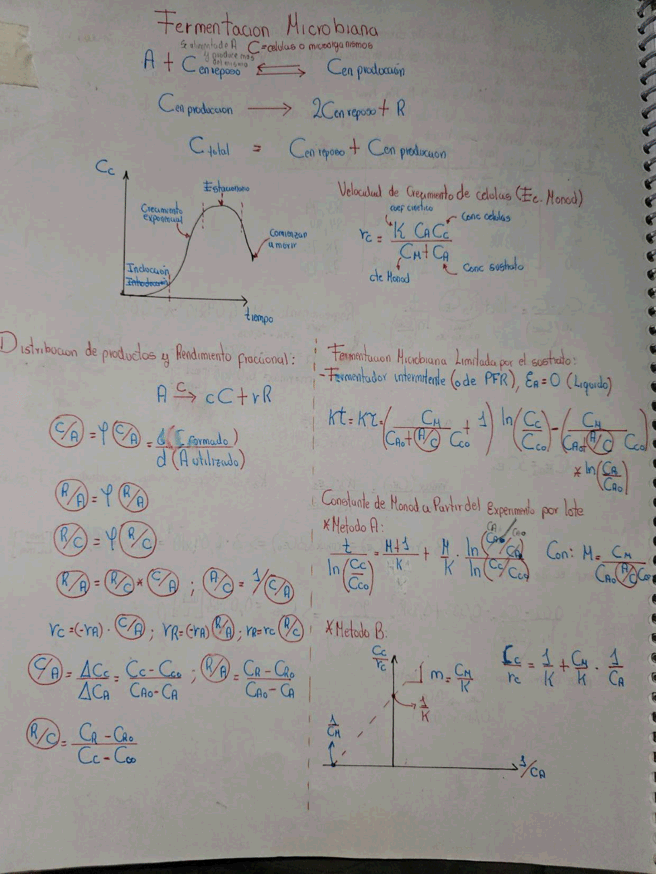 Fermentacion Microbiana
Se alimenta de A
y produce mas
del mismo
C=celulas o microorganismos
A + Cen reposo ⇌ Cen producción
Cen produccion → 2Cen reposo + R
Ctotal = Cen reposo + Cen produccion
Cc
Estacionario
Crecimiento
exponencial
Comienzan
a morir
Inducción
Introduccion
tiempo
Velocidad de Crecimiento de celulas (Ec. Monod)
coef cinetico
Conc celulas
rc = K CA Cc / CM + CA
cte Monod
Conc sustrato
Distribucion de productos y Rendimiento fraccional:
A →C cC + rR
(C/A) = φ(C/A) = d(C Formado) / d(A utilizado)
(R/A) = φ(R/A)
(R/C) = φ(R/C)
(R/A) = (R/C) * (C/A) ; (A/C) = 1/(C/A)
rc = (-rA) · (C/A) ; rR = (-rA)(R/A) ; rR = rc(R/C)
(C/A) = ΔCc/ΔCA = Cc - Cco / CAo - CA ; (R/A) = CR - CRo / CAo - CA
(R/C) = CR - CRo / Cc - Cco
Fermentacion Microbiana Limitada por el sustrato:
-Fermentador intermitente (o de PFR), εA = 0 (Liquido)
Kt = Kτ = (CM / CAo + (A/C) Cco + 1) ln(Cc/Cco) - (CM / CAo + (A/C) Cco)
* ln(CA/CAo)
Constante de Monod a Partir del Experimento por lote
*Metodo A:
t / ln(Cc/Cco) = M+1/K + M/K · ln(CAo/CA) / ln(Cc/Cco) Con: M = CM / CAo (A/C) Cco
*Metodo B:
Cc/rc
m = CM/K
1/K
1/CM
1/CA
Cc/rc = 1/K + CM/K · 1/CA